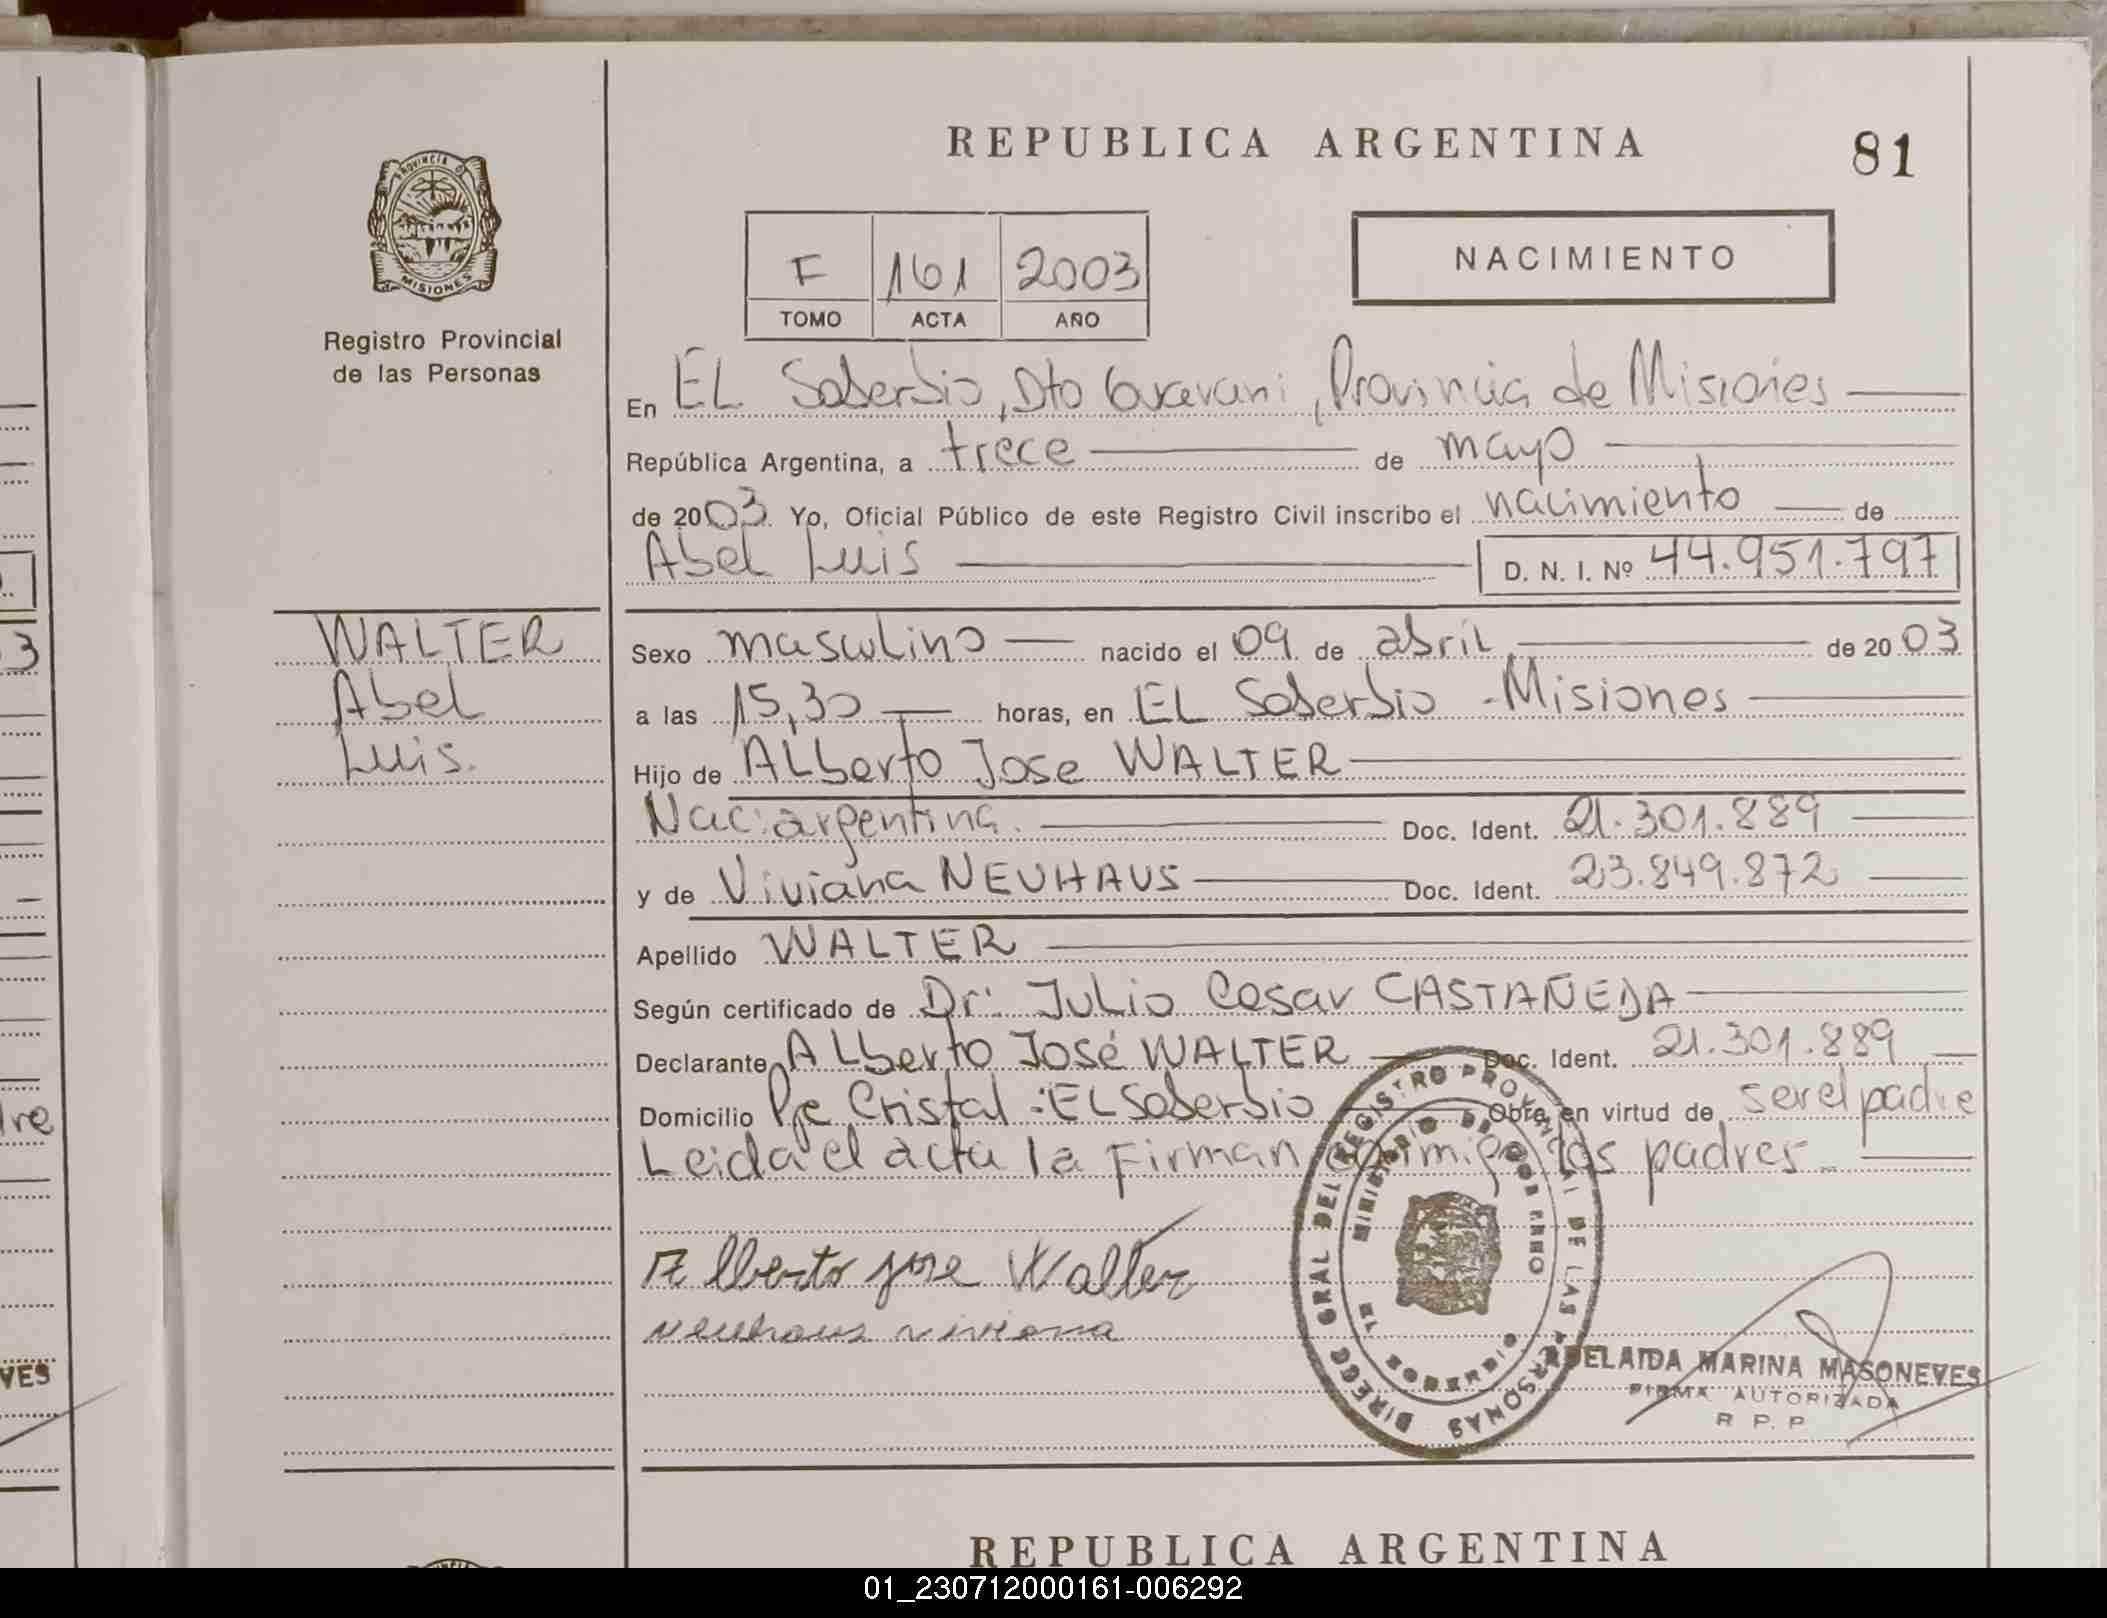 REPUBLICA ARGENTINA
81
PROVINCIA DE
MISIONES
Registro Provincial
de las Personas
F 161 2003
TOMO ACTA AÑO
NACIMIENTO
En EL Soberbio, Dto Guarani, Provincia de Misiones
República Argentina, a trece de mayo
de 2003. Yo, Oficial Público de este Registro Civil inscribo el nacimiento de
Abel Luis D. N. I. Nº 44.951.797
WALTER
Abel
Luis.
Sexo masculino nacido el 09 de abril de 2003
a las 15,30 horas, en EL Soberbio - Misiones
Hijo de ALberto Jose WALTER
Nac: argentina. Doc. Ident. 21.301.889
y de Viviana NEUHAUS Doc. Ident. 23.849.872
Apellido WALTER
Según certificado de Dr: Julio Cesar CASTAÑEDA
Declarante ALberto José WALTER Doc. Ident. 21.301.889
Domicilio Pje Cristal - EL Soberbio Obra en virtud de ser el padre
Leida el acta la Firman conmigo los padres
Alberto jose Walter
Neuhaus viviana
DIRECC GRAL DEL REGISTRO PROVINCIAL DE LAS PERSONAS
MINISTERIO DE GOBIERNO
ADELAIDA MARINA MASONEVES
FIRMA AUTORIZADA
R. P. P.
3
dre
VES
REPUBLICA ARGENTINA
01_230712000161-006292